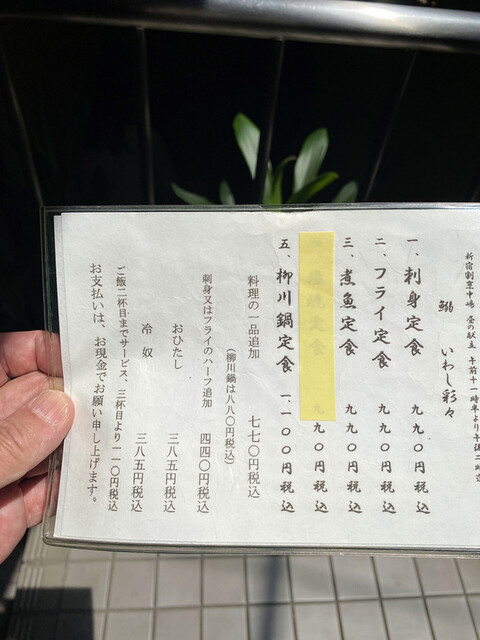 新宿割烹中嶋 昼の献立 午前十一時半より午後二時迄
鰯 いわし彩々
一、刺身定食 九九〇円税込
二、フライ定食 九九〇円税込
三、煮魚定食 九九〇円税込
四、塩焼定食 九九〇円税込
五、柳川鍋定食 一、一〇〇円税込
料理の一品追加 七七〇円税込
(柳川鍋は八八〇円税込)
刺身又はフライのハーフ追加 四四〇円税込
おひたし 三八五円税込
冷奴 三八五円税込
ご飯二杯目までサービス、三杯目より一一〇円税込
お支払いは、お現金でお願い申し上げます。